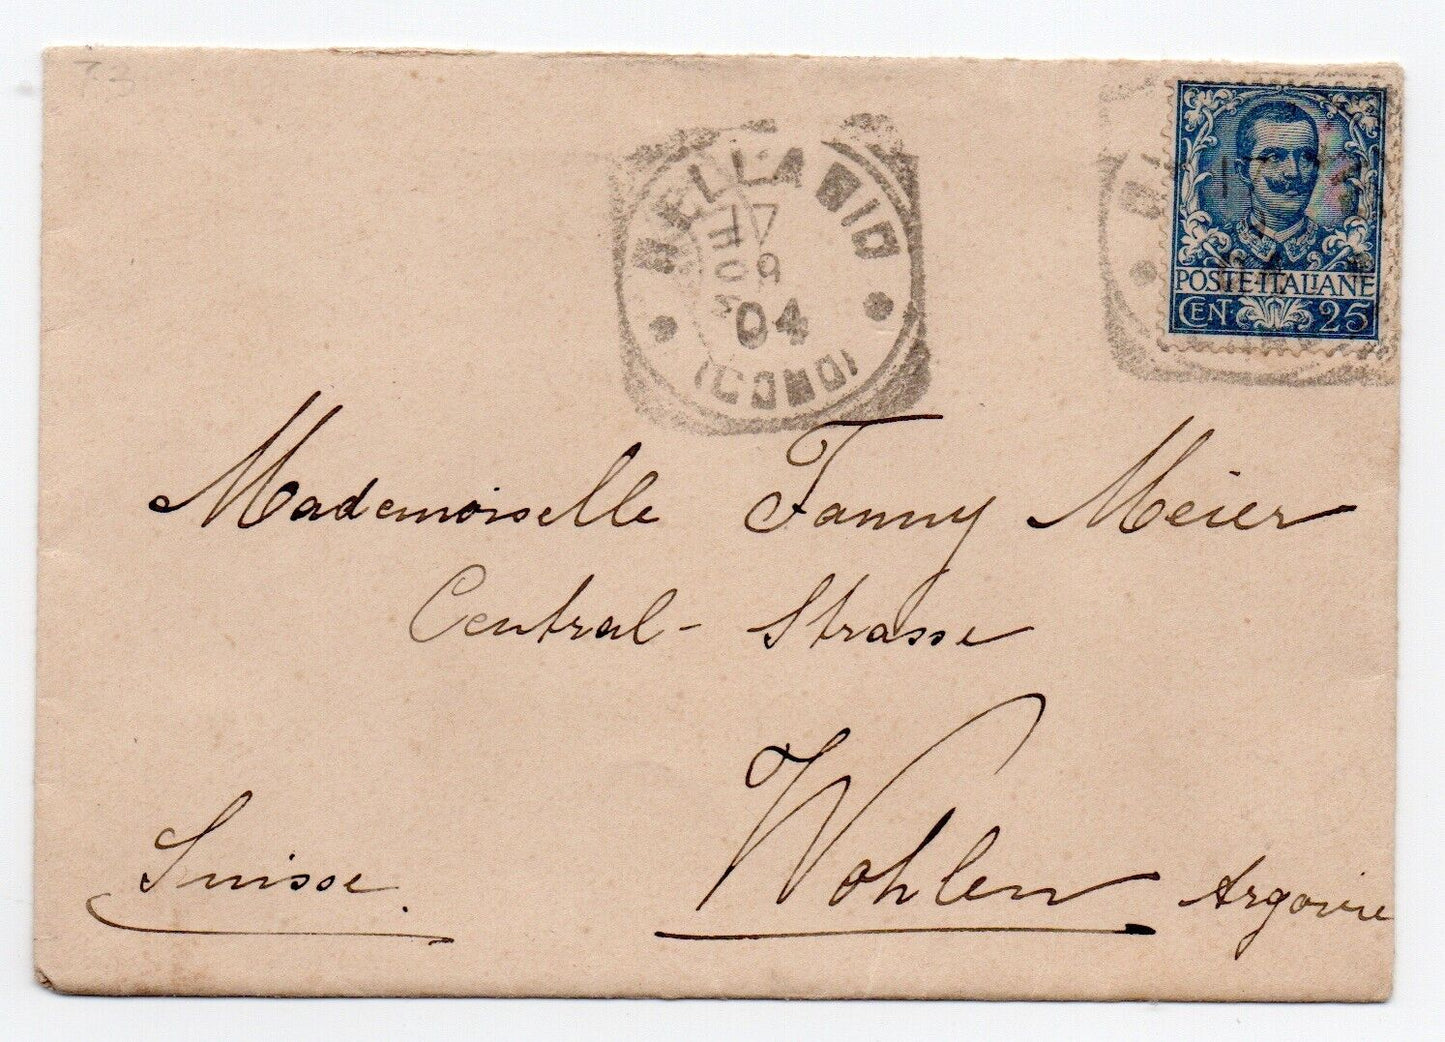 73
BELLAGIO
17
9
04
(COMO)
POSTE·ITALIANE
CEN· 25
Mademoiselle Fanny Meier
Central-Strasse
Wohlen Argovie
Suisse.